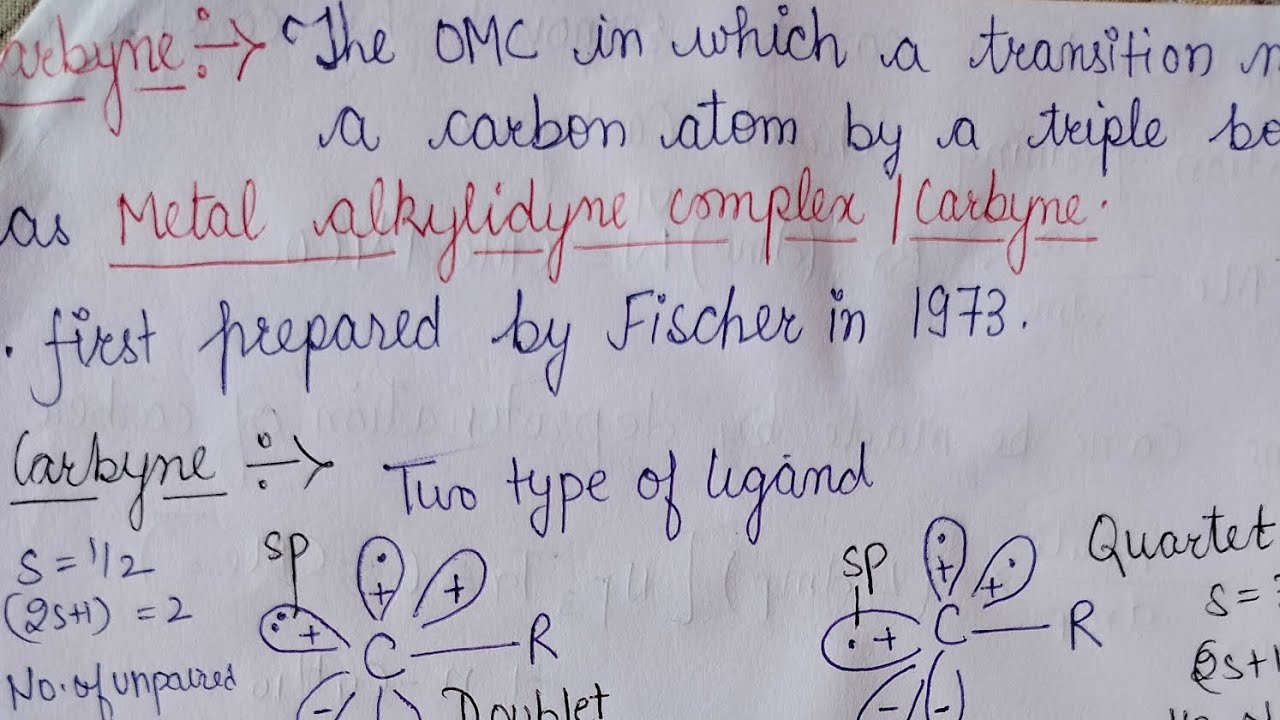 arbyne :→ The OMC in which a transition
a carbon atom by a triple
as Metal alkylidyne complex / Carbyne.
. first prepared by Fischer in 1973.
Carbyne :→ Two type of ligand
s = 1/2
(2s+1) = 2
No. of unpaired
sp
+
+
+
C
R
-
-
Doublet
sp
+
+
+
C
R
-
-
Quartet
s =
(2s+1